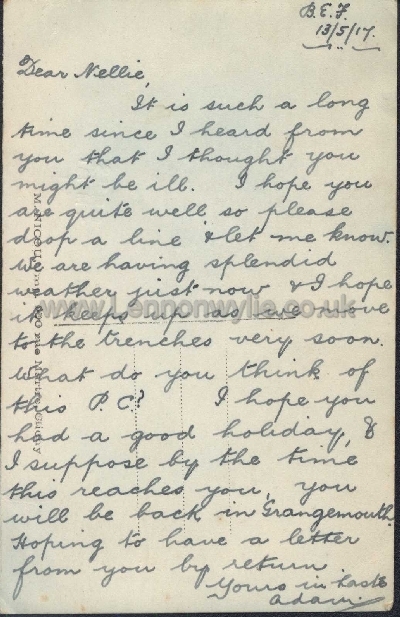 B.E.F.
13/5/17.
Dear Nellie,
It is such a long
time since I heard from
you that I thought you
might be ill. I hope you
are quite well so please
drop a line & let me know.
We are having splendid
weather just now & I hope
it keeps up as we move
to the trenches very soon.
What do you think of
this P.C.? I hope you
had a good holiday, &
I suppose by the time
this reaches you, you
will be back in Grangemouth.
Hoping to have a letter
from you by return
Yours in haste
Adam
www.Lennonwylie.co.uk